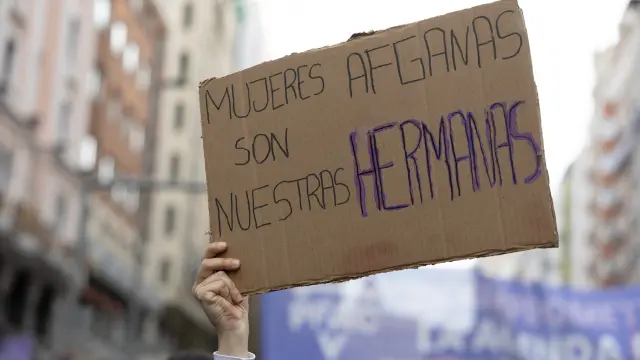 MUJERES AFGANAS
SON
NUESTRAS HERMANAS